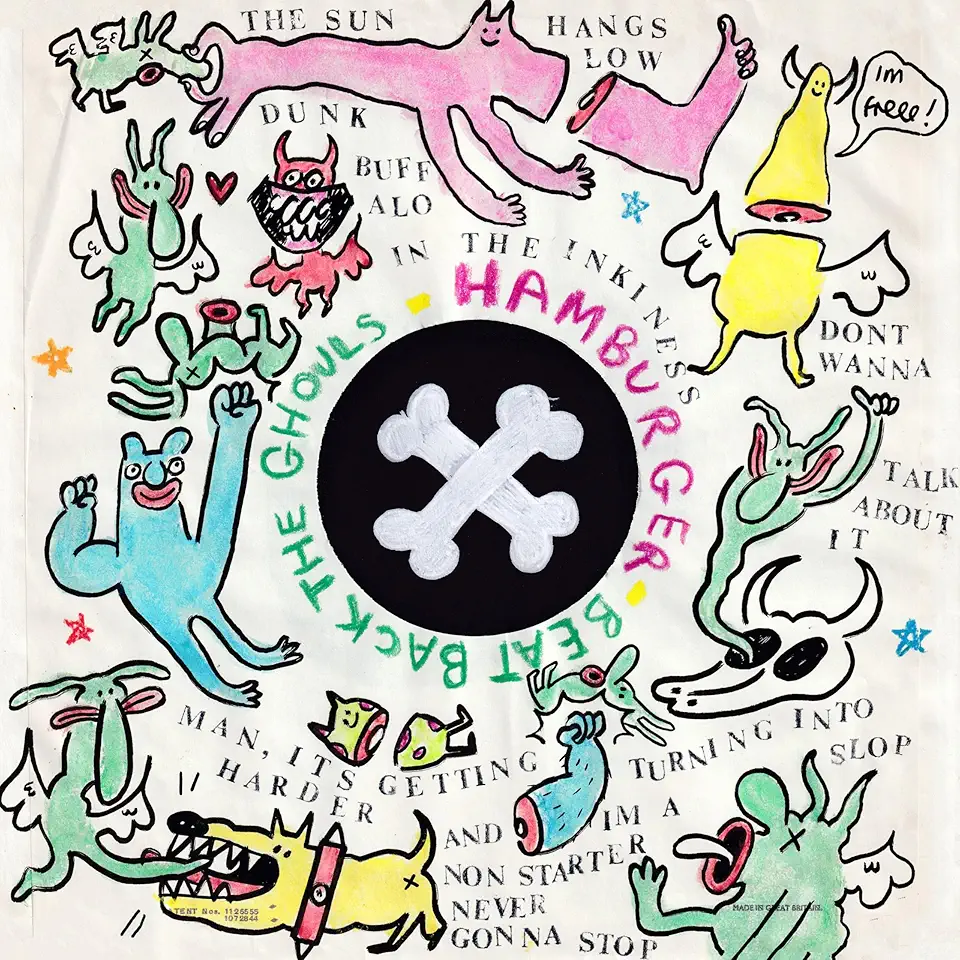 THE SUN
HANGS
LOW
im
freee!
DUNK
BUFF
ALO
IN THE INKINESS
HAMBURGER · BEAT BACK THE GHOULS ·
DONT
WANNA
TALK
ABOUT
IT
MAN, ITS GETTING
HARDER
TURNING INTO
SLOP
AND IM A
NON STARTER
NEVER
GONNA STOP
TENT Nos. 1125555
1072844
MADE IN GREAT BRITAIN.